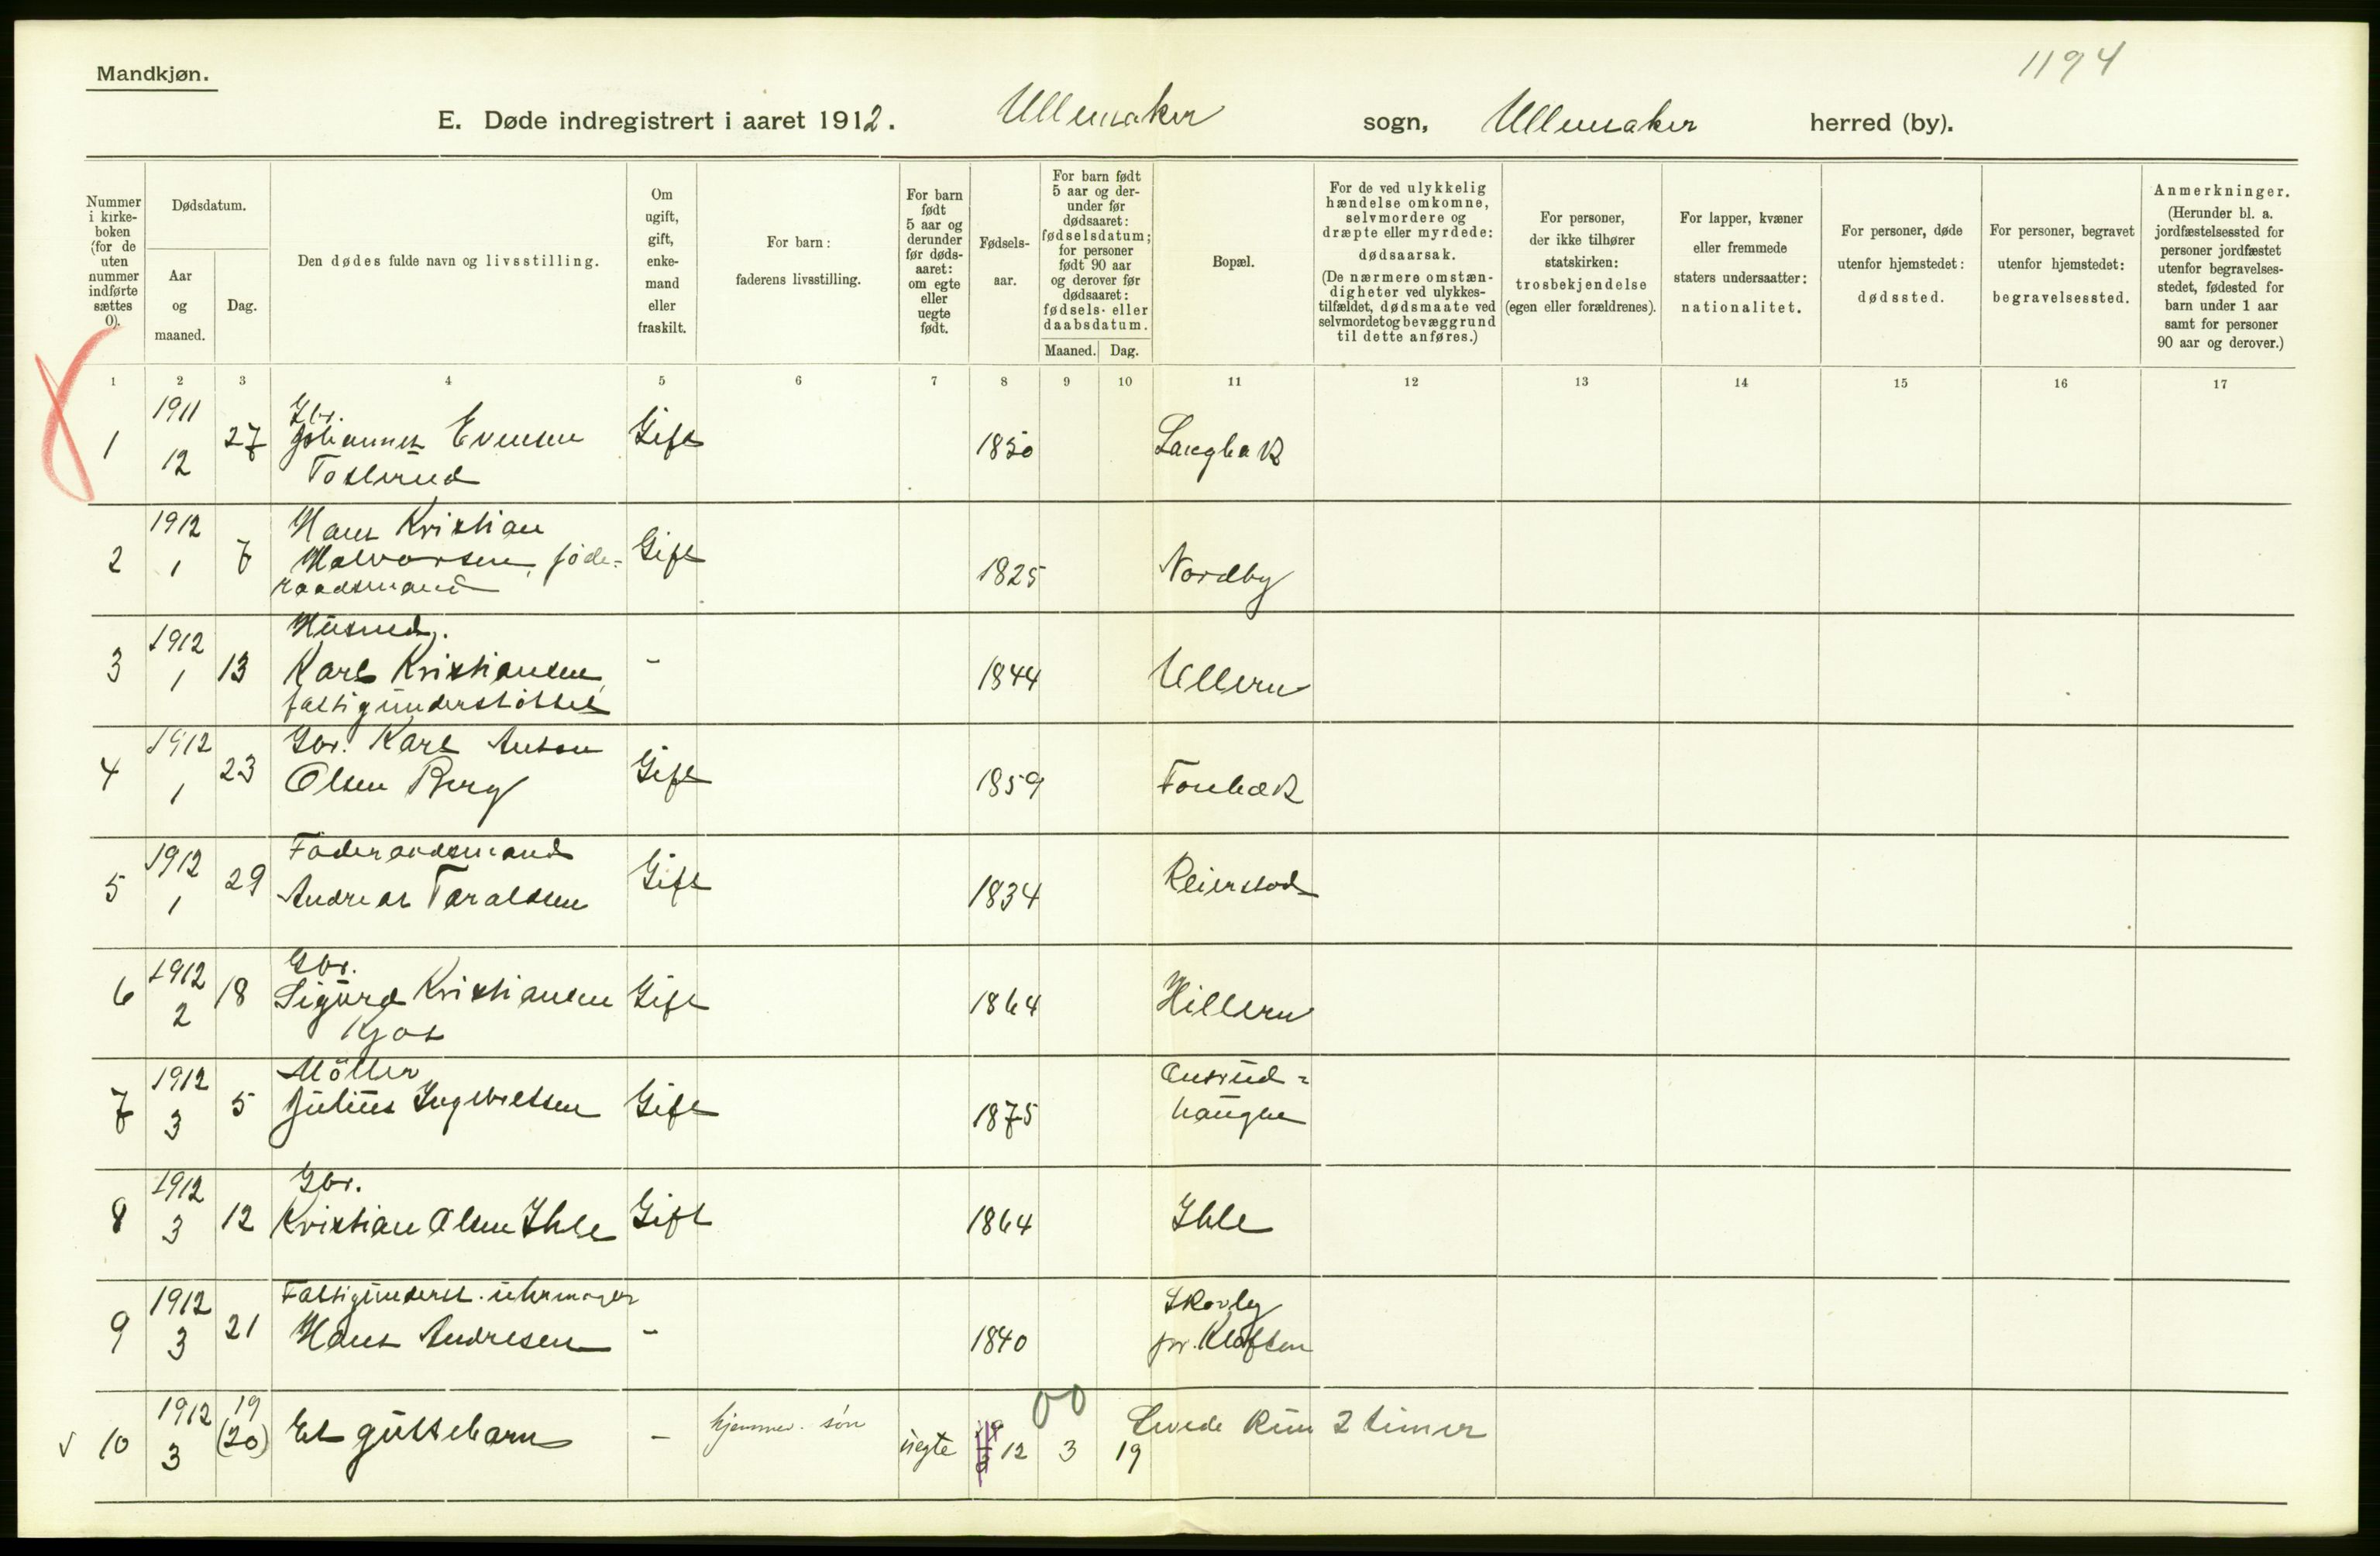 1194
Mandkjøn.
E. Døde indregistrert i aaret 1912. Ullensaker sogn, Ullensaker herred (by).
Nummer i kirke-boken (for de uten nummer indførte sættes 0).
Dødsdatum.
Aar og maaned.
Dag.
Den dødes fulde navn og livsstilling.
Om ugift, gift, enke-mand eller fraskilt.
For barn: faderens livsstilling.
For barn født 5 aar og derunder før døds-aaret: om egte eller uegte født.
Fødsels-aar.
For barn født 5 aar og der-under før dødsaaret: fødselsdatum; for personer født 90 aar og derover før dødsaaret: fødsels- eller daabsdatum.
Maaned. Dag.
Bopæl.
For de ved ulykkelig hændelse omkomne, selvmordere og dræpte eller myrdede: dødsaarsak. (De nærmere omstæn-digheter ved ulykkes-tilfældet, dødsmaate ved selvmordet og bevæggrund til dette anføres.)
For personer, der ikke tilhører statskirken: trosbekjendelse (egen eller forældrenes).
For lapper, kvæner eller fremmede staters undersaatter: nationalitet.
For personer, døde utenfor hjemstedet: dødssted.
For personer, begravet utenfor hjemstedet: begravelsessted.
Anmerkninger. (Herunder bl. a. jordfæstelsessted for personer jordfæstet utenfor begravelses-stedet, fødested for barn under 1 aar samt for personer 90 aar og derover.)
1 2 3 4 5 6 7 8 9 10 11 12 13 14 15 16 17
1 1911 12 27 Gbr. Johannes Evensen Toslerud Gift 1850 Langbak
2 1912 1 7 Hans Kristian Halvorsen, føde-raadsmand Gift 1825 Nordby
3 1912 1 13 Husmd. Karl Kristiansen, fattigunderstøttet - 1844 Ullern
4 1912 1 23 Gbr. Karl Anton Olsen Berg Gift 1859 Fonbæk
5 1912 1 29 Føderaadsmand Andreas Taraldsen Gift 1834 Reierstad
6 1912 2 18 Gbr. Sigurd Kristiansen Kjos Gift 1864 Hillern
7 1912 3 5 Møller Julius Ingebretsen Gift 1875 Onsrud-haugen
8 1912 3 12 Gbr. Kristian Olsen Ihle Gift 1864 Ihle
9 1912 3 21 Fattigunderst. uhrmager Hans Andresen - 1840 Skovly pr. Kløften
√ 10 1912 3 19 (20) Et guttebarn - hjemmev. søn uegte 12 00 3 19 Levede kun 2 timer